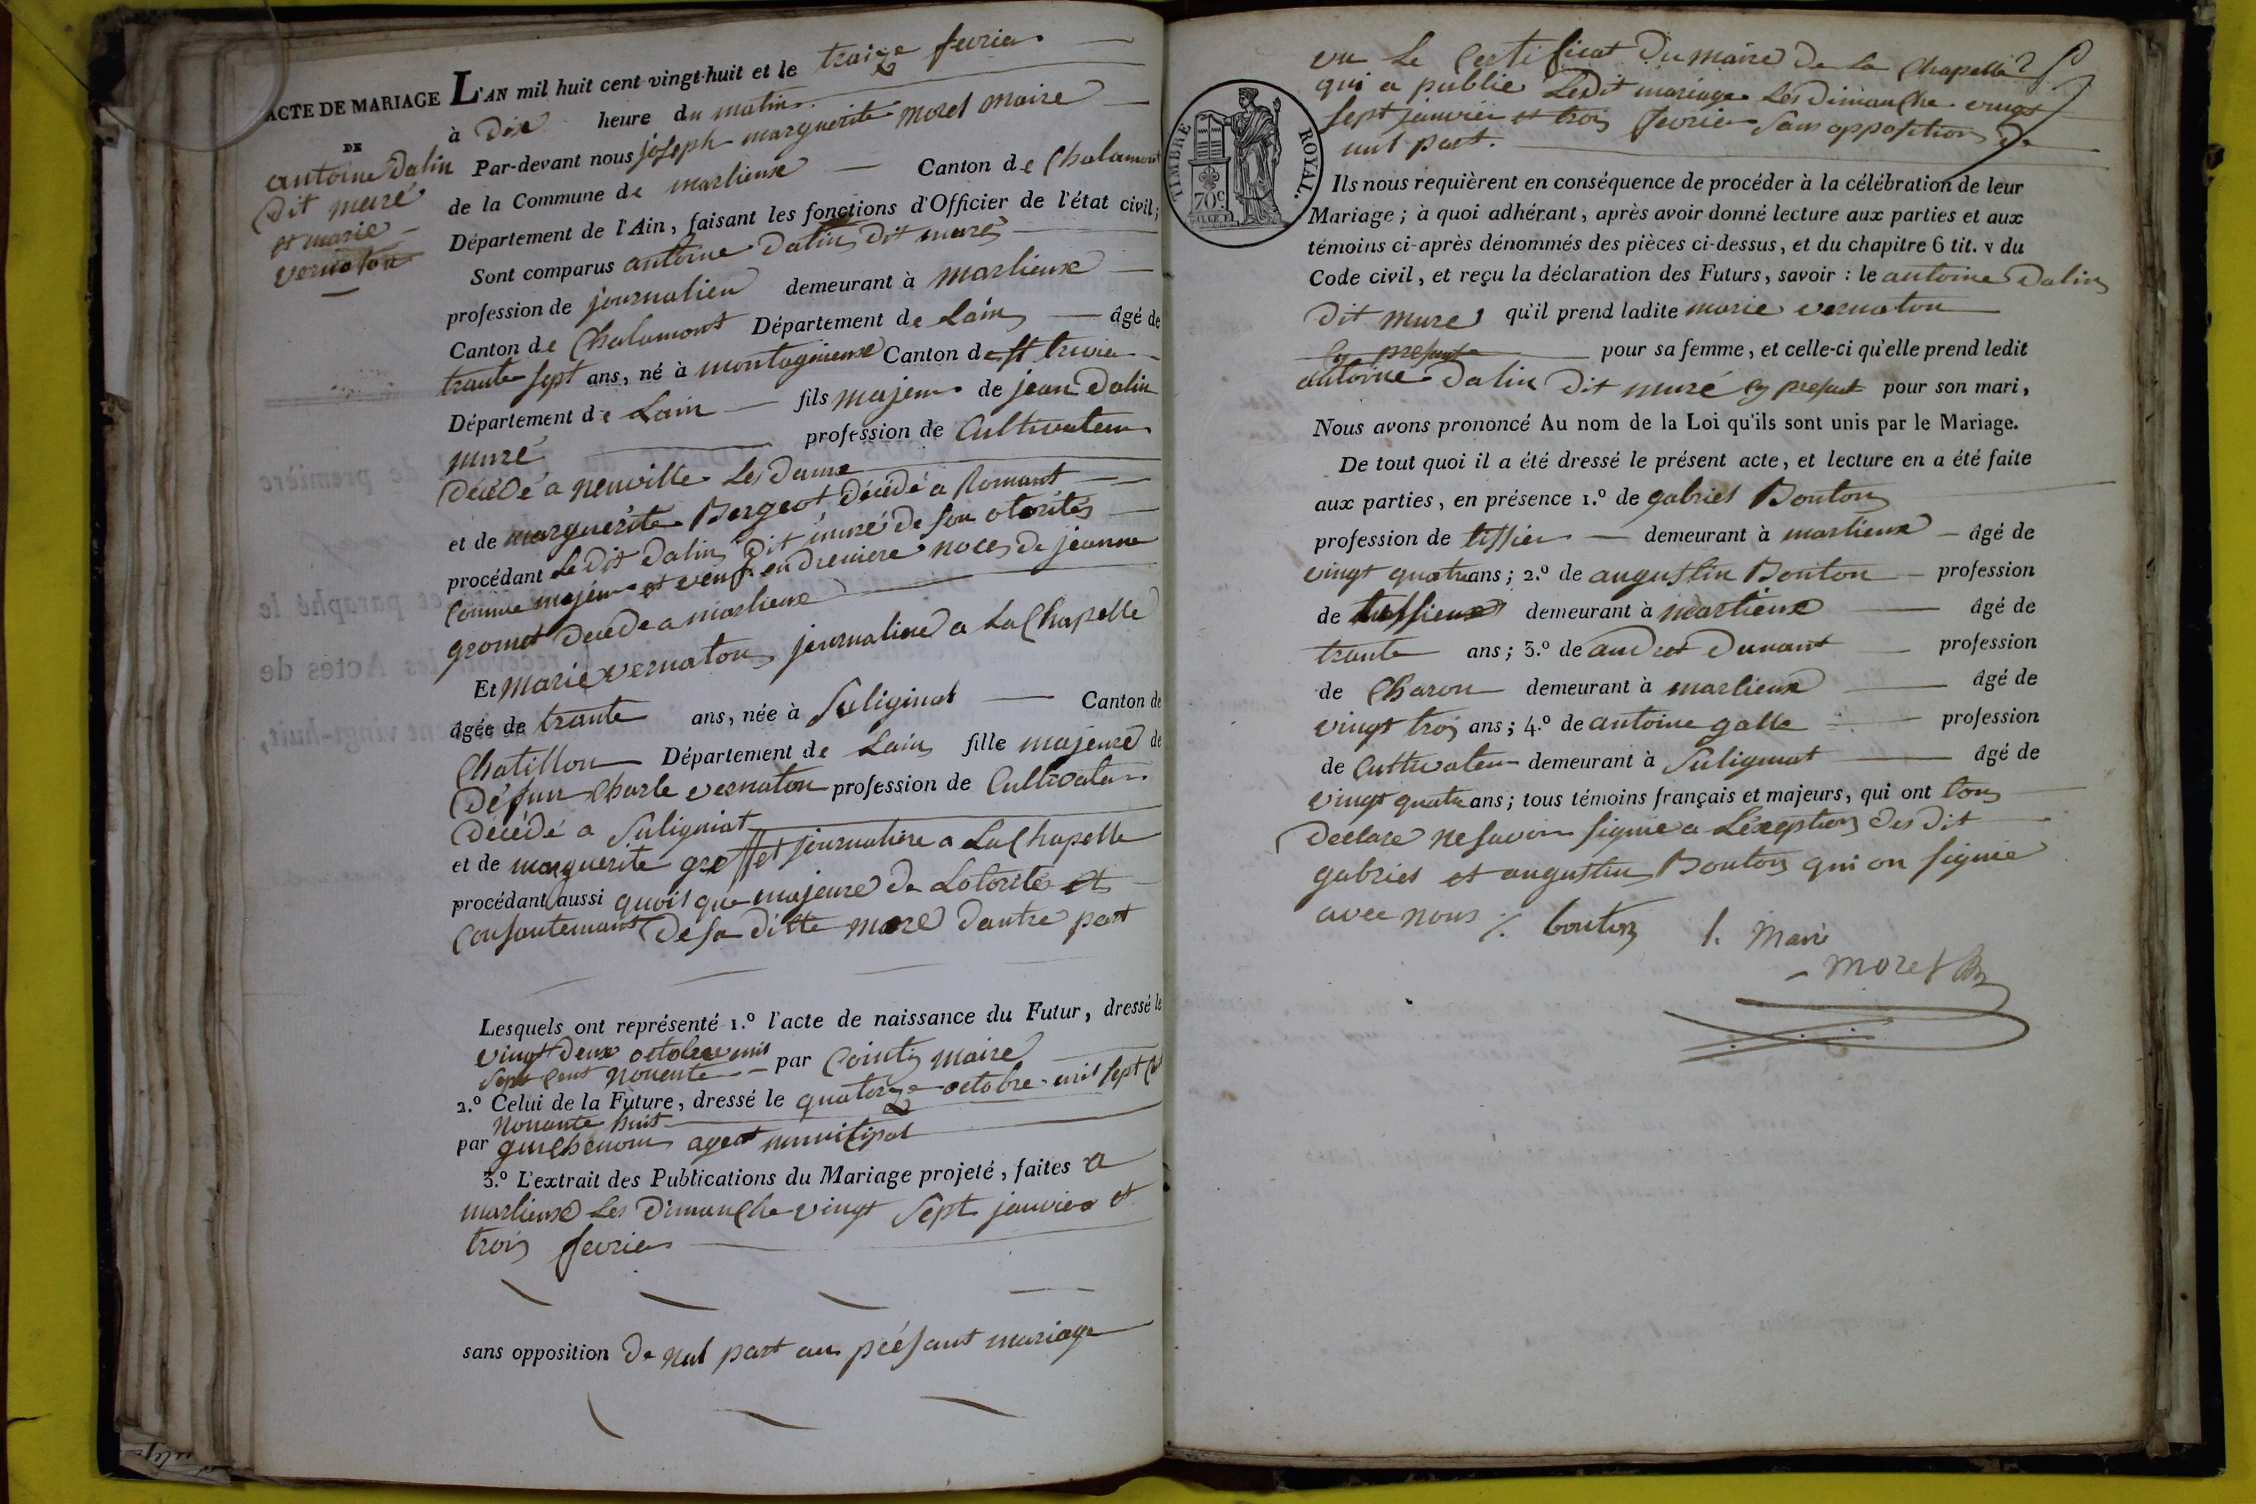 ACTE DE MARIAGE
DE
antoine Dalin
dit muré
et marie
vernaton
L'AN mil huit cent vingt-huit et le traize fevrier
à Dix heure du matin
Par-devant nous joseph marguerite morel maire
de la Commune de marlieux Canton de Chalamont
Département de l'Ain, faisant les fonctions d'Officier de l'état civil;
Sont comparus antoine Dalin dit muré
profession de journalier demeurant à marlieux
Canton de Chalamont Département de Lain âgé de
trante sept ans, né à montagnieux Canton de st trivie
Département de Lain fils majeur de jean Dalin
muré profession de Cultivateur
Décédé a neuville Les Dame
et de marguerite Bergeot décédé a Romant
procédant Le dit Dalin dit muré de son otorités
Comme majeur et veuf en dreniere noces de jeanne
gromet decédé a marlieux
Et marie vernaton journaliere a La Chapelle
âgée de trante ans, née à Suliginat Canton de
Chatillon Département de Lain fille majeure de
Défun Charle vernaton profession de Cultivateur
Décédé a Suligniat
et de marguerite greffet journalière a La Chapelle
procédant aussi quoisque majeure de Lotorités et
Consantemant de sa ditte mere dautre part
Lesquels ont représenté 1.º l'acte de naissance du Futur, dressé le
vingt deux octobre mil
sept cent nonente par Cointy maire
2.º Celui de la Future, dressé le quatorze octobre mil sept Ct
nonante huit
par guichenon agent municipal
3.º L'extrait des Publications du Mariage projeté, faites a
marlieux Les Dimanche vingt sept janvier et
trois fevrier
sans opposition De nul part au présant mariage
TIMBRE ROYAL.
70c
vu Le Certificat Du maire De La Chapelle
qui a publie Ledit mariage Les Dimanche vingt
sept janvier et trois fevrier sans opposition De
nul part.
Ils nous requièrent en conséquence de procéder à la célébration de leur
Mariage; à quoi adhérant, après avoir donné lecture aux parties et aux
témoins ci-après dénommés des pièces ci-dessus, et du chapitre 6 tit. v du
Code civil, et reçu la déclaration des Futurs, savoir: le antoine Dalin
Dit muré qu'il prend ladite marie vernaton
cy presante pour sa femme, et celle-ci qu'elle prend ledit
antoine Dalin dit muré cy presant pour son mari,
Nous avons prononcé Au nom de la Loi qu'ils sont unis par le Mariage.
De tout quoi il a été dressé le présent acte, et lecture en a été faite
aux parties, en présence 1.º de gabriel Bouton
profession de tissier demeurant à marlieux âgé de
vingt quatre ans; 2.º de augustin Bouton profession
de tissieur demeurant à marlieux âgé de
trante ans; 3.º de andret Dunant profession
de Charon demeurant à marlieux âgé de
vingt trois ans; 4.º de antoine galle profession
de Cultivateur demeurant à Suligniat âgé de
vingt quatre ans; tous témoins français et majeurs, qui ont tous
Declare ne savoir signie a Léxeption des dit
gabriel et augustin Bouton qui on signie
avec nous bouton l. Marie
morel